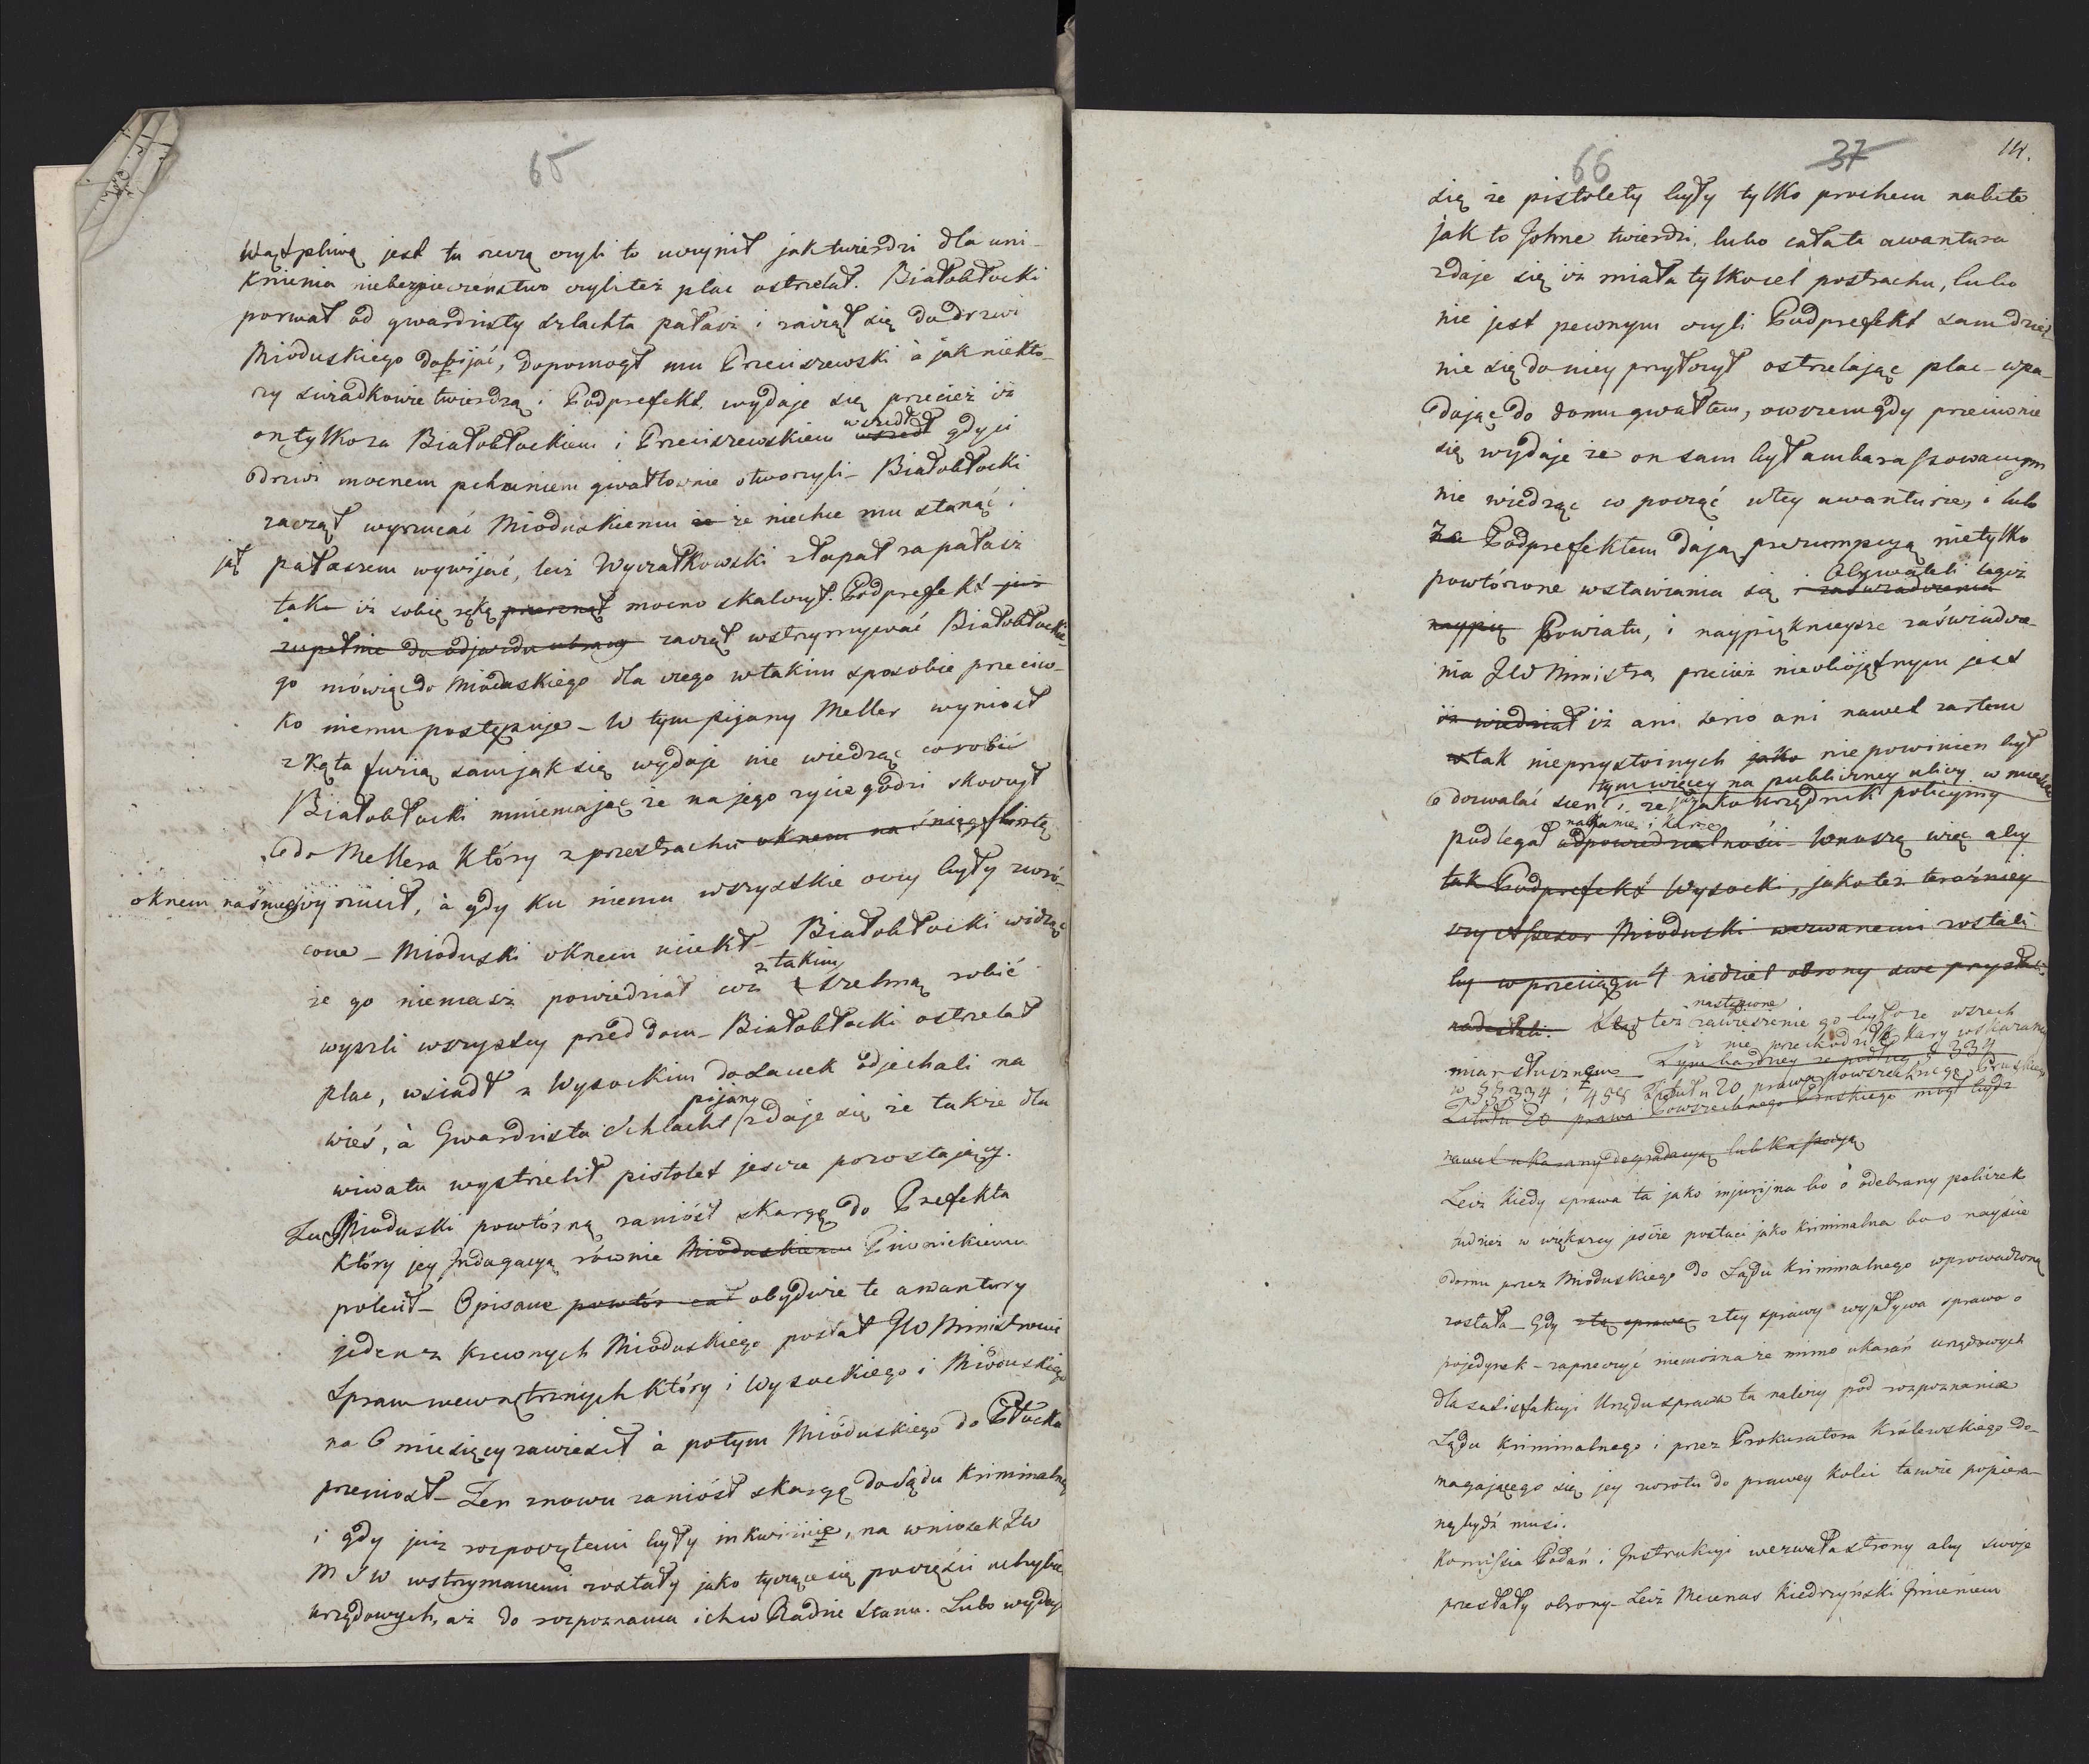 65
Wątpliwą jest tu rzeczą czyli to uczynił jak twierdzi dla uni-
knienia niebezpieczeństwa czyli też plac ostrzelał. Białobłocki
porwał od gwardzisty szlachta pałasz i zaczął się do drzwi
Mioduskiego dobijać, dopomogł mu Preciszewski à jak niekto-
rzy swiadkowie twierdzą i Podprefekt. wydaje się przecież iż
on tylko za Białobłockiem i Preciszewskiem wszedł wszedł gdy ci
drzwi mocnem pchnieniem gwałtownie otworzyli – Białobłocki
zaczął wyrzucać Mioduskiemu że że niechce mu stanąć i
jął pałaszem wywijać, lecz Wyczałkowski złapał za pałasz
tak iż sobie rękę mocno skaleczył. Podprefekt już
zupełnie do odjazdu ubrany zaczął wstrzymywać Białobłockie-
go mówiąc do Mioduskiego dla czego w takim sposobie przeciw-
ko niemu postępuje – W tym pijany Meller wyniosł
z kąta fuzią sam jak się wydaje nie wiedząc co robić
Białobłocki mniemając że na jego życie godzi skoczył
do Mellera który z przestrachu oknem na śnieg flintę
oknem na śnieg wyrzucił, à gdy ku niemu wszystkie oczy były zwró-
cone – Mioduski oknem uciekł – Białobłocki widząc
że go niemasz powiedział coż z takim szelmą robić
wyszli wszyscy przed dom – Białobłocki ostrzelał
plac, wsiadł z Wysockim do sanek odjechali na
wieś, à Gwardzista Schlacht pijany zdaje się że także dla
wiwatu wystrzelił pistolet jescze pozostający.
Zu Mioduski powtórną zaniósł skargę do Prefekta
który jey Indagacyą równie Mioduskiemu Piwnickiemu
polecił – Opisane obydwie te awantury
jeden z krewnych Mioduskiego posłał JW Ministrowi
Spraw wewnętrznych który i Wysockiego i Mioduskiego
na 6 miesięcy zawiesił à potym Mioduskiego do Płocka
przeniosł – Ten znowu zaniósł skargę do Sądu Kriminalne
i gdy już rozpoczętemi były inkwizicie, na wniosek JW
M S W wstrzymanemi zostały jako tyczące się poczęści uchybie
urzędowych, aż do rozpoznania ich w Radzie Stanu. Lubo wydaje
66
37
14.
się że pistolety były tylko prochem nabite
jak to Johne twierdzi, lubo cała ta awantura
zdaje się iż miała tylko cel postrachu, lubo
nie jest pewnym czyli Podprefekt sam dziel-
nie się do niey przyłożył ostrzelając plac – wpa-
dając do domu gwałtem, owszem gdy przeciwnie
się wydaje że on sam był ambarassowanym
nie wiedząc co począć w tey awanturze, i lubo
za Podprefektem dają prezumpcyą nietylko
powtórzone wstawiania się i zaświadczenia Obywateli tegoż
naypię Powiatu, i naypięknieysze zaświadcze-
nia JW Ministra, przecież nieobojętnym jest
iż wiedział iż ani serio ani nawet żartem
w tak nieprzystoinych jako nie powinien był
tym więcey na publiczney ulicy w mieście
dozwalać scen i że jako urzędnik policyiny
podlegał naganie i karze odpowiedzialności – Wnoszą więc aby
tak Podprefekt Wysocki, jako też terazniey
szy Assessor Mioduski wezwanemi zostali
by w przeciągu 4 niedziel obrony swe przysłali
nadesłali. też nastąpione zawieszenie go było ze wszech
miar słusznem i nie przeszkodziło kary wskazaney
Tym bardziey że podług § 334
w §§ 334 i 458 Tytułu 20 prawa powszechnego Pruskiego
Tytułu 20 prawa Powszechnego Pruskiego mógł bydź
nawet ukarany degradacyą lub kassacyą
Lecz kiedy sprawa ta jako injuryjna bo o odebrany policzek
tudzież w większey jescze postaci jako kriminalna bo o nayście
domu przez Mioduskiego do Sądu Kriminalnego wprowadzoną
została – Gdy z tey sprawy z tey sprawy wypływa sprawa o
pojedynek – zaprzeczyć niemożna że mimo ukarań urzędowych
dla satisfakcyi Urzędu sprawa ta należy pod rozpoznanie
Sądu Kriminalnego i przez Prokuratora Królewskiego do-
magającego się jey zwrotu do prawey kolei tamże popiera-
ną bydź musi.
Komissia Podań i Instrukcyi wezwała strony aby swoje
przesłały obrony – Lecz Mecenas Kiedrzyński Imieniem